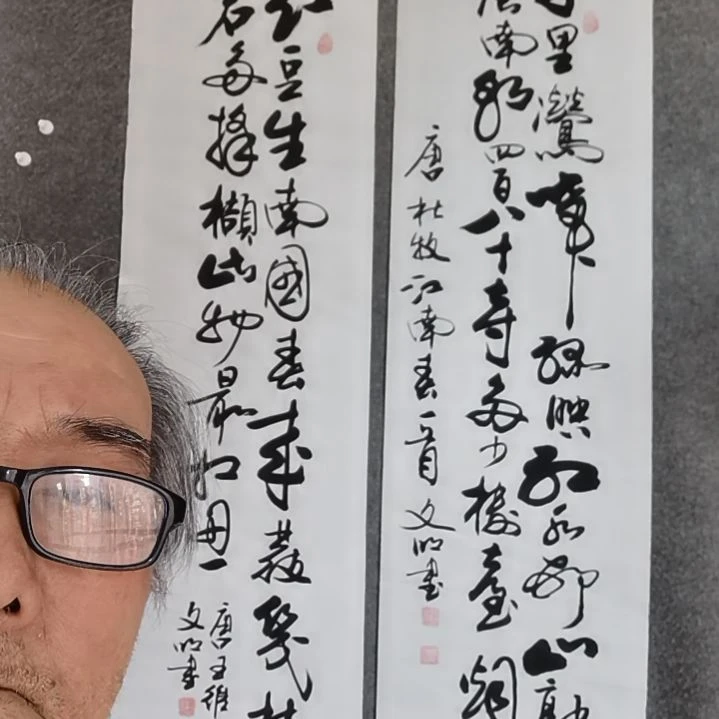 里鶯啼綠映紅水邨山郭
南朝四百八十寺多少樓臺烟
唐杜牧江南春一首文明書
紅豆生南國春來發幾枝
君多採擷此物最相思
唐王維
文明書